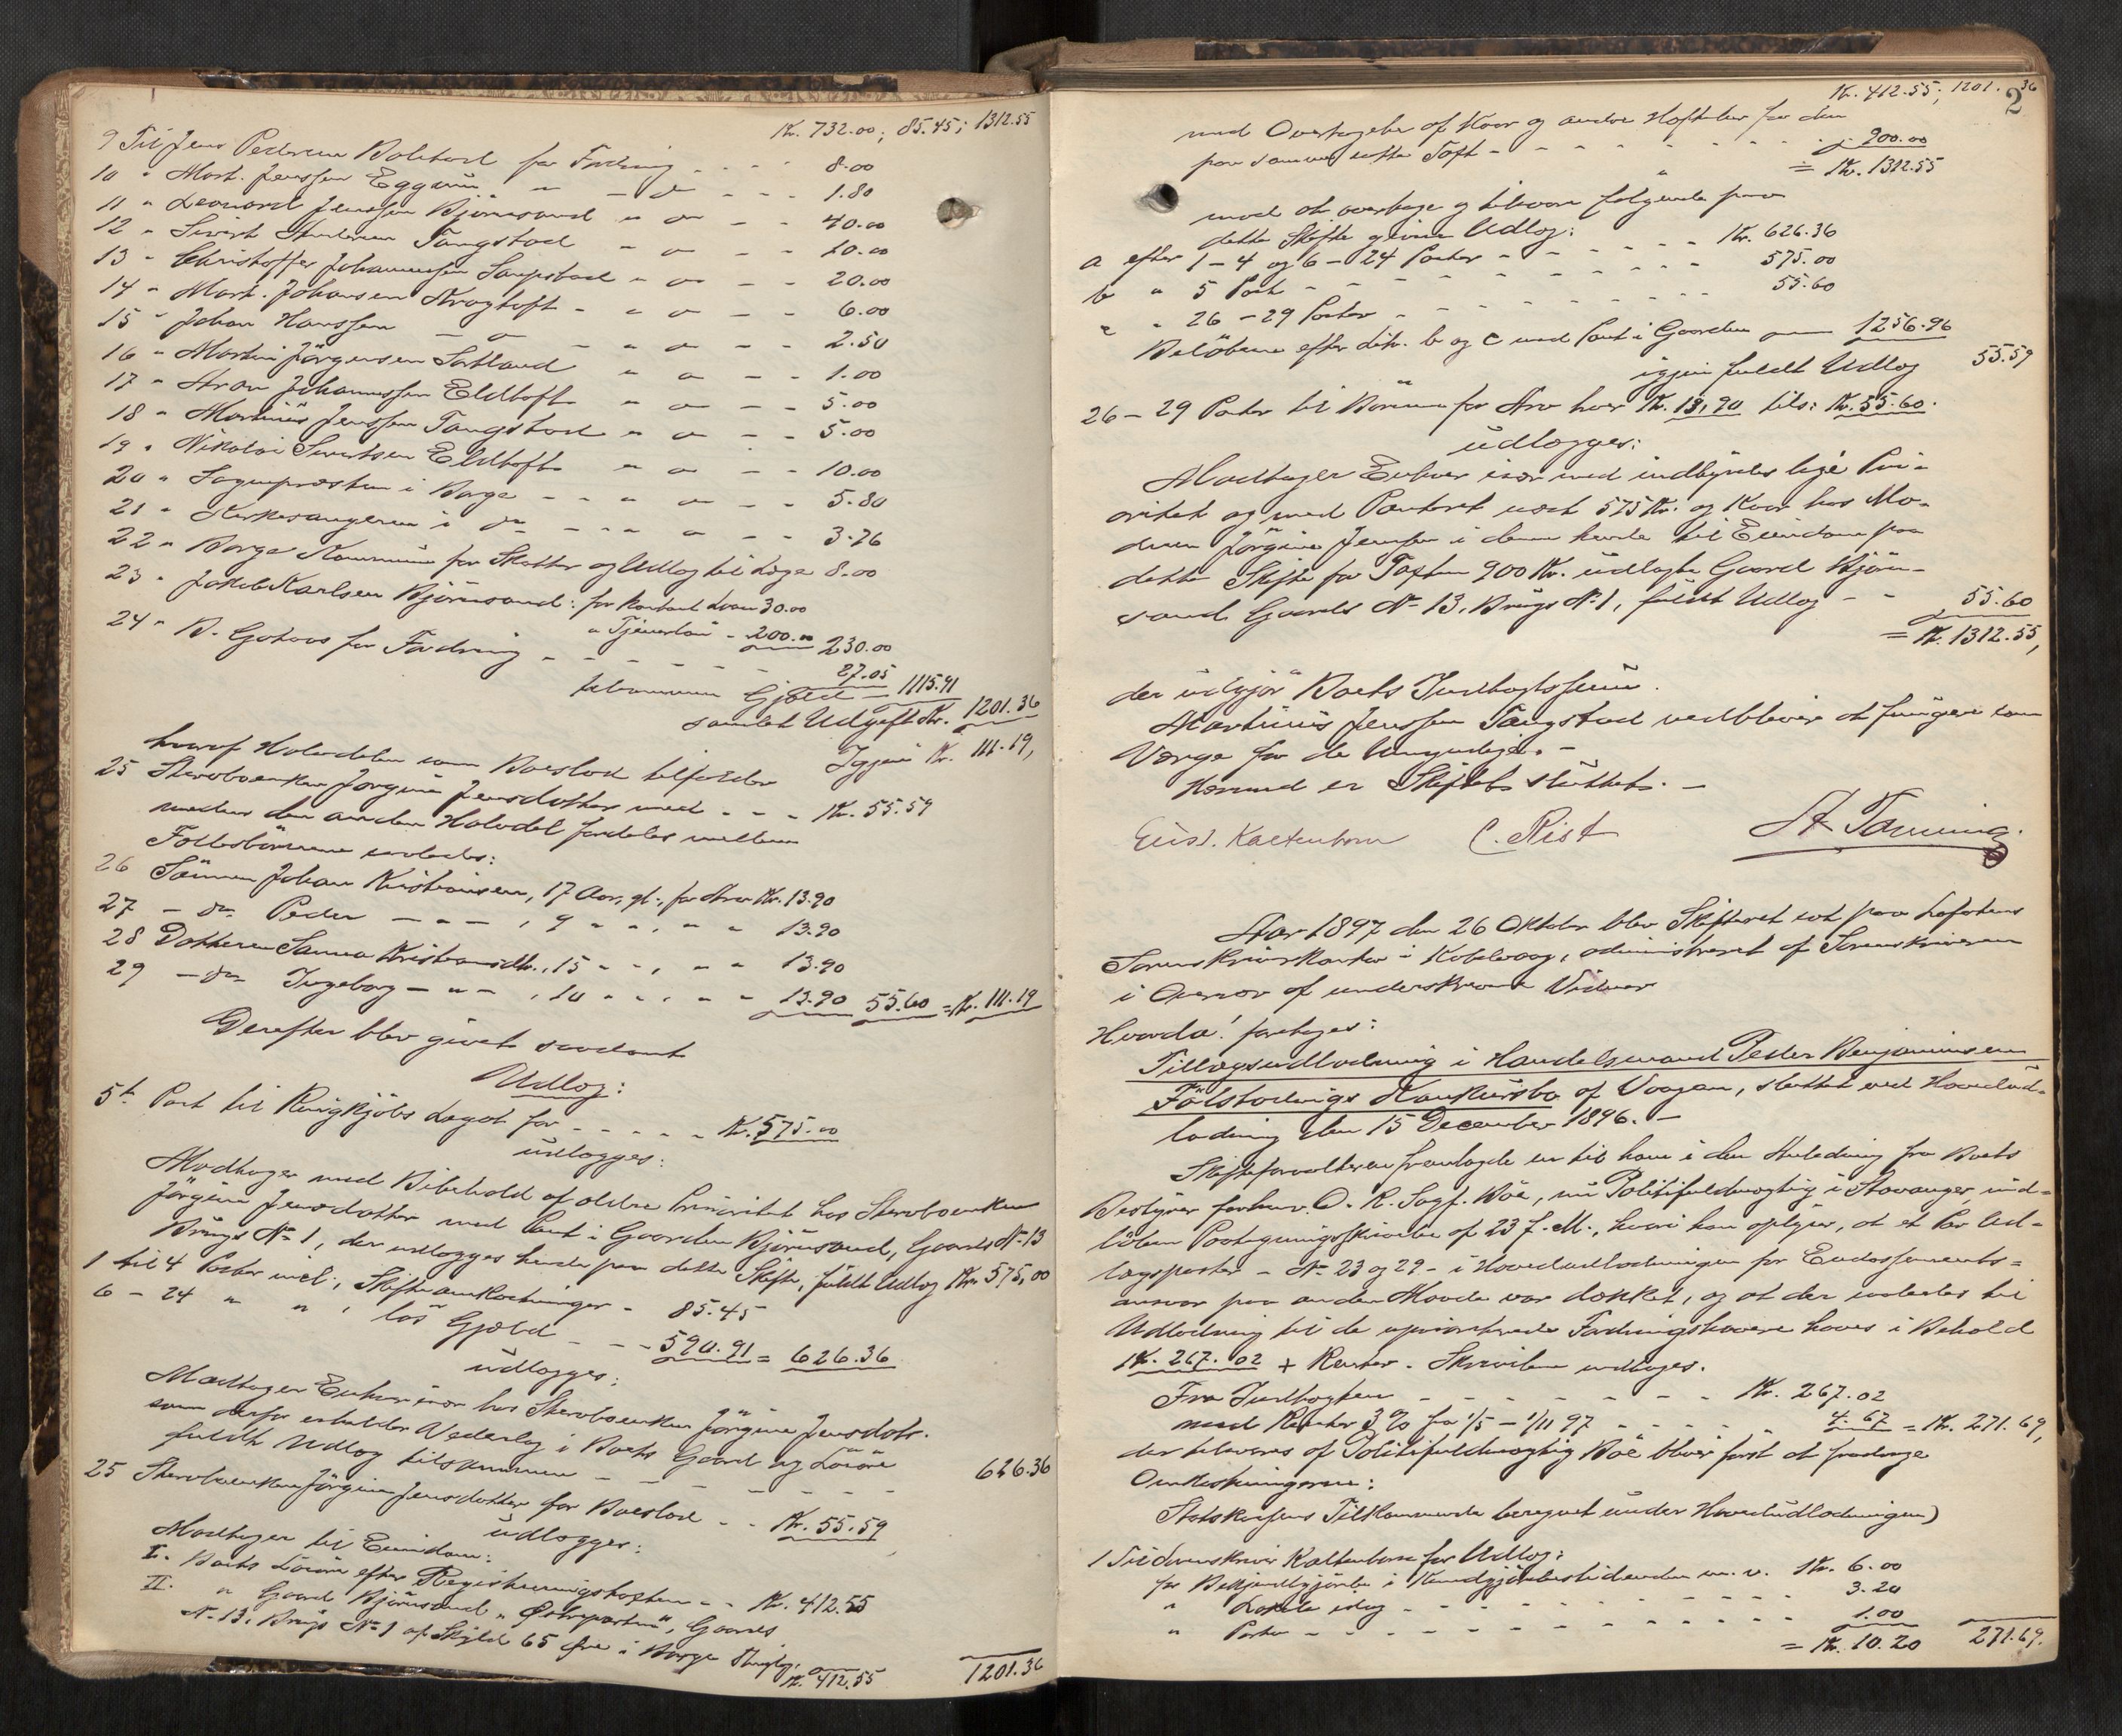 Kr. 732.00; 85.45; 1312.55
9 Til Jens Pedersen Bolstad for Fordring - - - 8.00
10 " Mart. Jenssen Eggum " - d° - - - 1.80
11 " Leonard Jenssen Bjørnsand " " - - 40.00
12 " Sivert Tangstad " " - - 10.00
13 " Christoffer Johannessen Saupstad " " - - 20.00
14 " Mart. Johansen Kragtoft " " - - 6.00
15 " Johan Hanssen - " - " " - - 2.50
16 " Martin Jørgensen Sortland " " - - 1.00
17 " Aron Johannessen Eltoft " " - - 5.00
18 " Martinus Jenssen Tangstad " " - - 5.00
19 " Nikolai Sivertsen Eltoft " " - - 10.00
20 " Sognepræsten i Borge - - " " - - 5.80
21 " Kirkesangeren i d° - - " " - - 3.76
22 " Borge Kommune for Skatter og Udlæg til Læge 8.00
23 " Jakob Karlsen Bjørnsand: for kontant Laan 30.00
" Tjenerløn - 200.00 230.00
24 " B. Gotaas for Fordring - - - - - - 27.05
tilsammen Gjæld - 1115.91
samlet Udgift Kr. 1201.36
Igjen Kr. 111.19,
hvoraf Halvdelen som Boeslod tilfalder
25 Stervboenken Jørgine Jensdatter med - - - Kr. 55.59
medens den anden Halvdel fordeles mellem
Fællesbørnene saaledes:
26 Sønnen Johan Kristiansen, 17 Aar gl., for Arv Kr. 13.90
27 - d° Peder - " - , 9 " " , " " 13.90
28 Datteren Sanna Kristiansdtr., 15 " " , " " 13.90
29 - d° Ingeborg - " - , 10 " " , " " 13.90 55.60 = Kr. 111.19
Derefter blev givet saadant
Udlæg:
5te Post til Ringkjøbs Legat for - - - - - Kr. 575.00
udlægges:
Modtager med Bibehold af ældre Prioritet hos Stervboenken
Jørgine Jensdatter med Pant i Gaarden Bjørnsand, Gaards N° 13
Brugs N° 1, der udlægges hende paa dette Skifte, fuldt Udlæg Kr. 575,00
1 til 4 Poster incl., Skifteomkostninger - 85.45
6 - 24 " " , løs Gjæld - - 540.91 = 626.36
udlægges:
Modtager Enhver især hos Stervboenken Jørgine Jensdatr.
som derfor erholder Vederlag i Boets Gaard og Løsøre
fuldt Udlæg tilsammen - - - - - - - 626.36
25 Stervboenken Jørgine Jensdatter for Boeslod - - Kr. 55.59
udlægges:
Modtager til Eiendom:
I. Boets Løsøre efter Registreringstaxten - - Kr. 412.55
II. " Gaard Bjørnsand "Østreparten", Gaards
N° 13, Brugs N° 1 af Skyld 65 Øre i Borge Thinglag,
Kr. 412.55 1201.36
Kr. 412.55; 1201.36
2
med Overtagelse af Kaar og andre Heftelser for den
paa samme satte Taxt - - - - - - - - 900.00
= Kr. 1312.55
mod at overtage og tilsvare følgende paa
dette Skifte givne Udlæg:
a efter 1 - 4 og 6 - 24 Poster - - - - - Kr. 626.36
b " 5 Post - - - - - - - - - 575.00
c " 26 - 29 Poster - - - - - - - 55.60
Beløbene efter Litr. b og c med Pant i Gaarden 1256.96
igjen fuldt Udlæg 55.59
26 - 29 Poster til Børnene for Arv hver Kr. 13,90 tils: Kr. 55.60.
udlægges:
Modtager Enhver især med indbyrdes lige Pri-
oritet og med Panteret næst 575 Kr. og Kaar hos Mo-
deren Jørgine Jenssen i denne hende til Eiendom paa
dette Skifte for Taxten 900 Kr. udlagte Gaard Bjørn-
sand Gaards N° 13, Brugs N° 1, fuldt Udlæg - - 55.60
= Kr. 1312.55,
der udgjør Boets Indtægtssum.
Martinus Jenssen Tangstad vedbliver at fungere som
Værge for de Umyndige. -
Hermed er Skiftet sluttet. -
Eins. Kaltenborn C. Rist A. Tanning.
Aar 1897 den 26 Oktober blev Skifteret sat paa Lofotens
Sorenskriverkontor i Kabelvaag, administreret af Sorenskriveren
i Overvær af underskrevne Vidner
Hvorda! foretoges:
Tillægsudlodning i Handelsmand Peder Benjaminsen
Følstadvigs Konkursbo af Vaagan, sluttet ved Hovedud-
lodning den 15 December 1896. -
Skifteforvalteren fremlagde en til ham i den Anledning fra Boets
Bestyrer forhenv. O. R. Sagf. Bøe, nu Politifuldmægtig i Stavanger, ind-
løben Paategningsskrivelse af 23 f. M., hvori han oplyser, at et Par Ud-
lægsposter - N° 23 og 29 - i Hovedudlodningen for Endossements-
ansvar paa anden Maade var dækket, og at der saaledes til
Udlodning til de uprioriterede Fordringshavere haves i Behold
Kr. 267.02 + Renter. Skrivelsen indtages.
Fra Indtægten - - - - - - - - Kr. 267.02
med Renter 3% fra 1/5 - 1/11 97 - - - - - 4.67 = Kr. 271.69,
der tilsvares af Politifuldmægtig Bøe bliver først at fradrage
Omkostningerne:
Statskassens Tilkommende beregnet under Hovedudlodningen)
1 Til Sorenskriver Kaltenborn for Udlæg:
for Bekjendtgjørelse i Kundgjørelsestidenden m. v. Kr. 6.00
" Lokale idag - - - - - - - - - - 3.20
" Porto - - - - - - - - - - - 1.00
= Kr. 10.20 271.69.